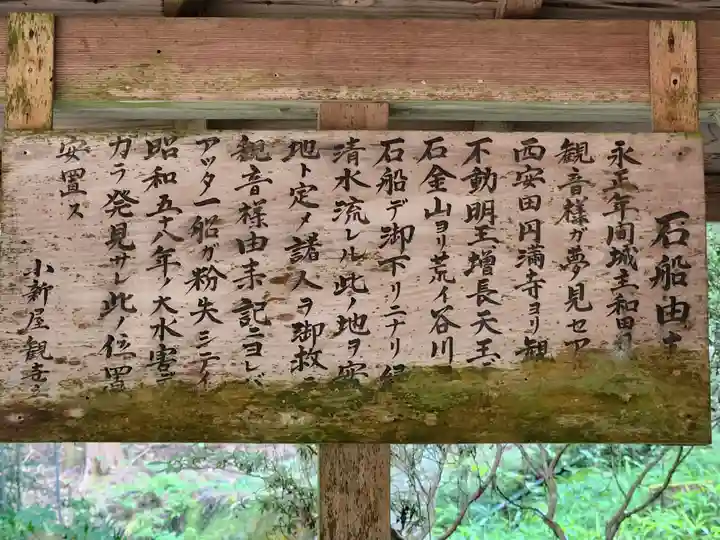 石船由
永正年間城主和田
観音様ガ夢見セ
西安田円満寺ヨリ観
不動明王増長天王
石金山ヨリ荒イ谷川
石船デ御下リニナリ
清水流レル此ノ地ヲ安
地ト定メ諸人ヲ御救
観音様由来記ニヨレバ
アッタ一船ガ粉失シテイ
昭和五十八年ノ大水害
カラ発見サレ此ノ位置
安置ス
小新屋観音